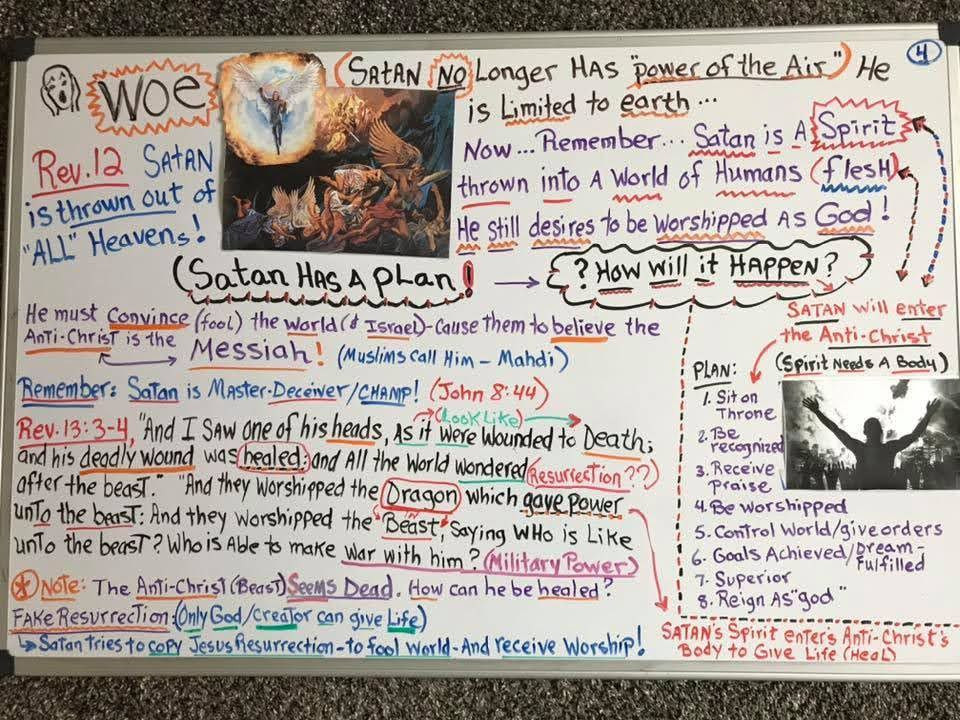 4
WOE
(Satan NO Longer Has "power of the Air") He
is Limited to earth...
Rev. 12 Satan
is thrown out of
"ALL" Heavens!
Now... Remember... Satan is A Spirit
thrown into A World of Humans (flesh)
He Still desires to be Worshipped As God!
(Satan Has A Plan!
? How will it Happen?
He must Convince (fool) the World (& Israel)-Cause them to believe the
Anti-Christ is the Messiah! (Muslims Call Him - Mahdi)
Remember: Satan is Master-Deceiver/CHAMP! (John 8:44)
(Look Like)
Rev. 13:3-4, "And I Saw one of his heads, As it were Wounded to Death;
and his deadly wound was healed: and All the World wondered (Resurrection??)
after the beast." "And they Worshipped the Dragon which gave power
unto the beast: And they worshipped the Beast, Saying Who is Like
unto the beast? Who is Able to make war with him? (Military Power)
Note: The Anti-Christ (Beast) Seems Dead. How can he be healed?
Fake Resurrection: (Only God/Creator can give Life)
Satan tries to copy Jesus Resurrection-to fool World-And receive Worship!
Satan will enter
the Anti-Christ
(Spirit Needs A Body)
Plan:
1. Sit on
Throne
2. Be
recognized
3. Receive
Praise
4. Be worshipped
5. Control World/give orders
6. Goals Achieved/Dream-
Fulfilled
7. Superior
8. Reign As "god"
Satan's Spirit enters Anti-Christ's
Body to Give Life (Heal)